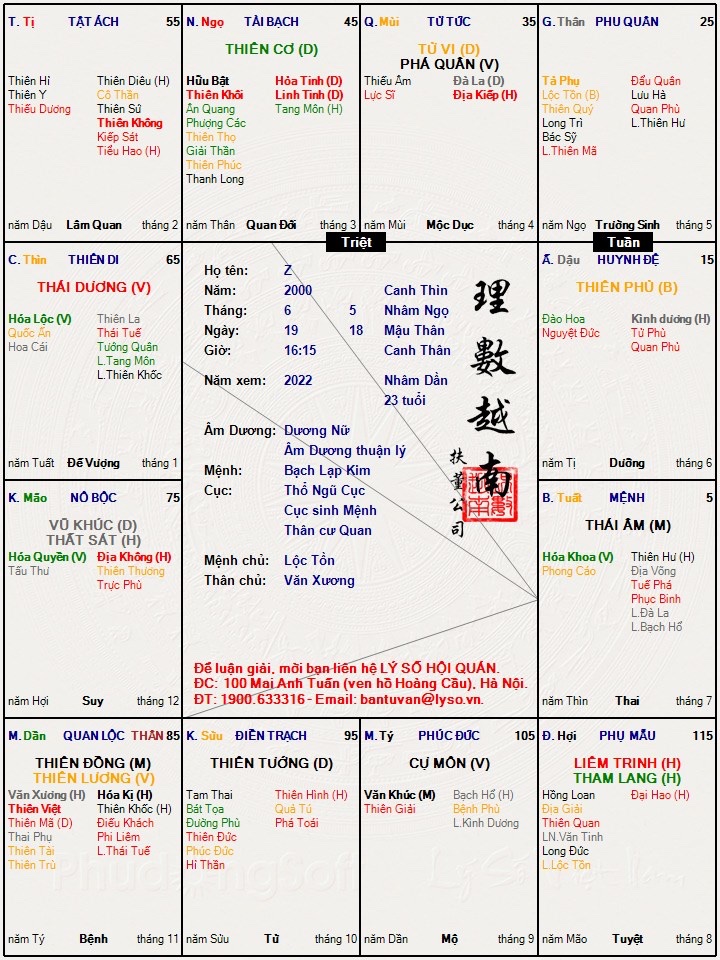 T. Tị TẬT ÁCH 55
Thiên Hỉ
Thiên Y
Thiếu Dương
Thiên Diêu (H)
Cô Thần
Thiên Sứ
Thiên Không
Kiếp Sát
Tiểu Hao (H)
năm Dậu Lâm Quan tháng 2
N. Ngọ TÀI BẠCH 45
THIÊN CƠ (D)
Hữu Bật
Thiên Khôi
Ân Quang
Phượng Các
Thiên Thọ
Giải Thần
Thiên Phúc
Thanh Long
Hỏa Tinh (D)
Linh Tinh (D)
Tang Môn (H)
năm Thân Quan Đới tháng 3
Q. Mùi TỬ TỨC 35
TỬ VI (D)
PHÁ QUÂN (V)
Thiếu Âm
Lực Sĩ
Đà La (D)
Địa Kiếp (H)
năm Mùi Mộc Dục tháng 4
G. Thân PHU QUÂN 25
Tả Phụ
Lộc Tồn (B)
Thiên Quý
Long Trì
Bác Sỹ
L.Thiên Mã
Đẩu Quân
Lưu Hà
Quan Phù
L.Thiên Hư
năm Ngọ Trường Sinh tháng 5
Triệt
Tuần
C. Thìn THIÊN DI 65
THÁI DƯƠNG (V)
Hóa Lộc (V)
Quốc Ấn
Hoa Cái
Thiên La
Thái Tuế
Tướng Quân
L.Tang Môn
L.Thiên Khốc
năm Tuất Đế Vượng tháng 1
Họ tên: Z
Năm: 2000 Canh Thìn
Tháng: 6 5 Nhâm Ngọ
Ngày: 19 18 Mậu Thân
Giờ: 16:15 Canh Thân
Năm xem: 2022 Nhâm Dần
23 tuổi
Âm Dương: Dương Nữ
Âm Dương thuận lý
Mệnh: Bạch Lạp Kim
Cục: Thổ Ngũ Cục
Cục sinh Mệnh
Thân cư Quan
Mệnh chủ: Lộc Tồn
Thân chủ: Văn Xương
理數越南
扶董公司
Để luận giải, mời bạn liên hệ LÝ SỐ HỘI QUÁN.
ĐC: 100 Mai Anh Tuấn (ven hồ Hoàng Cầu), Hà Nội.
ĐT: 1900.633316 - Email: bantuvan@lyso.vn.
Ấ. Dậu HUYNH ĐỆ 15
THIÊN PHỦ (B)
Đào Hoa
Nguyệt Đức
Kình dương (H)
Tử Phù
Quan Phủ
năm Tị Dưỡng tháng 6
K. Mão NÔ BỘC 75
VŨ KHÚC (D)
THẤT SÁT (H)
Hóa Quyền (V)
Tấu Thư
Địa Không (H)
Thiên Thương
Trực Phù
năm Hợi Suy tháng 12
B. Tuất MỆNH 5
THÁI ÂM (M)
Hóa Khoa (V)
Phong Cáo
Thiên Hư (H)
Địa Võng
Tuế Phá
Phục Binh
L.Đà La
L.Bạch Hổ
năm Thìn Thai tháng 7
M. Dần QUAN LỘC THÂN 85
THIÊN ĐỒNG (M)
THIÊN LƯƠNG (V)
Văn Xương (H)
Thiên Việt
Thiên Mã (D)
Thai Phụ
Thiên Tài
Thiên Trù
Hóa Kị (H)
Thiên Khốc (H)
Điếu Khách
Phi Liêm
L.Thái Tuế
năm Tý Bệnh tháng 11
K. Sửu ĐIỀN TRẠCH 95
THIÊN TƯỚNG (D)
Tam Thai
Bát Tọa
Đường Phù
Thiên Đức
Phúc Đức
Hỉ Thần
Thiên Hình (H)
Quả Tú
Phá Toái
năm Sửu Tử tháng 10
M. Tý PHÚC ĐỨC 105
CỰ MÔN (V)
Văn Khúc (M)
Thiên Giải
Bạch Hổ (H)
Bệnh Phù
L.Kình Dương
năm Dần Mộ tháng 9
Đ. Hợi PHỤ MẪU 115
LIÊM TRINH (H)
THAM LANG (H)
Hồng Loan
Địa Giải
Thiên Quan
LN.Văn Tinh
Long Đức
L.Lộc Tồn
Đại Hao (H)
năm Mão Tuyệt tháng 8